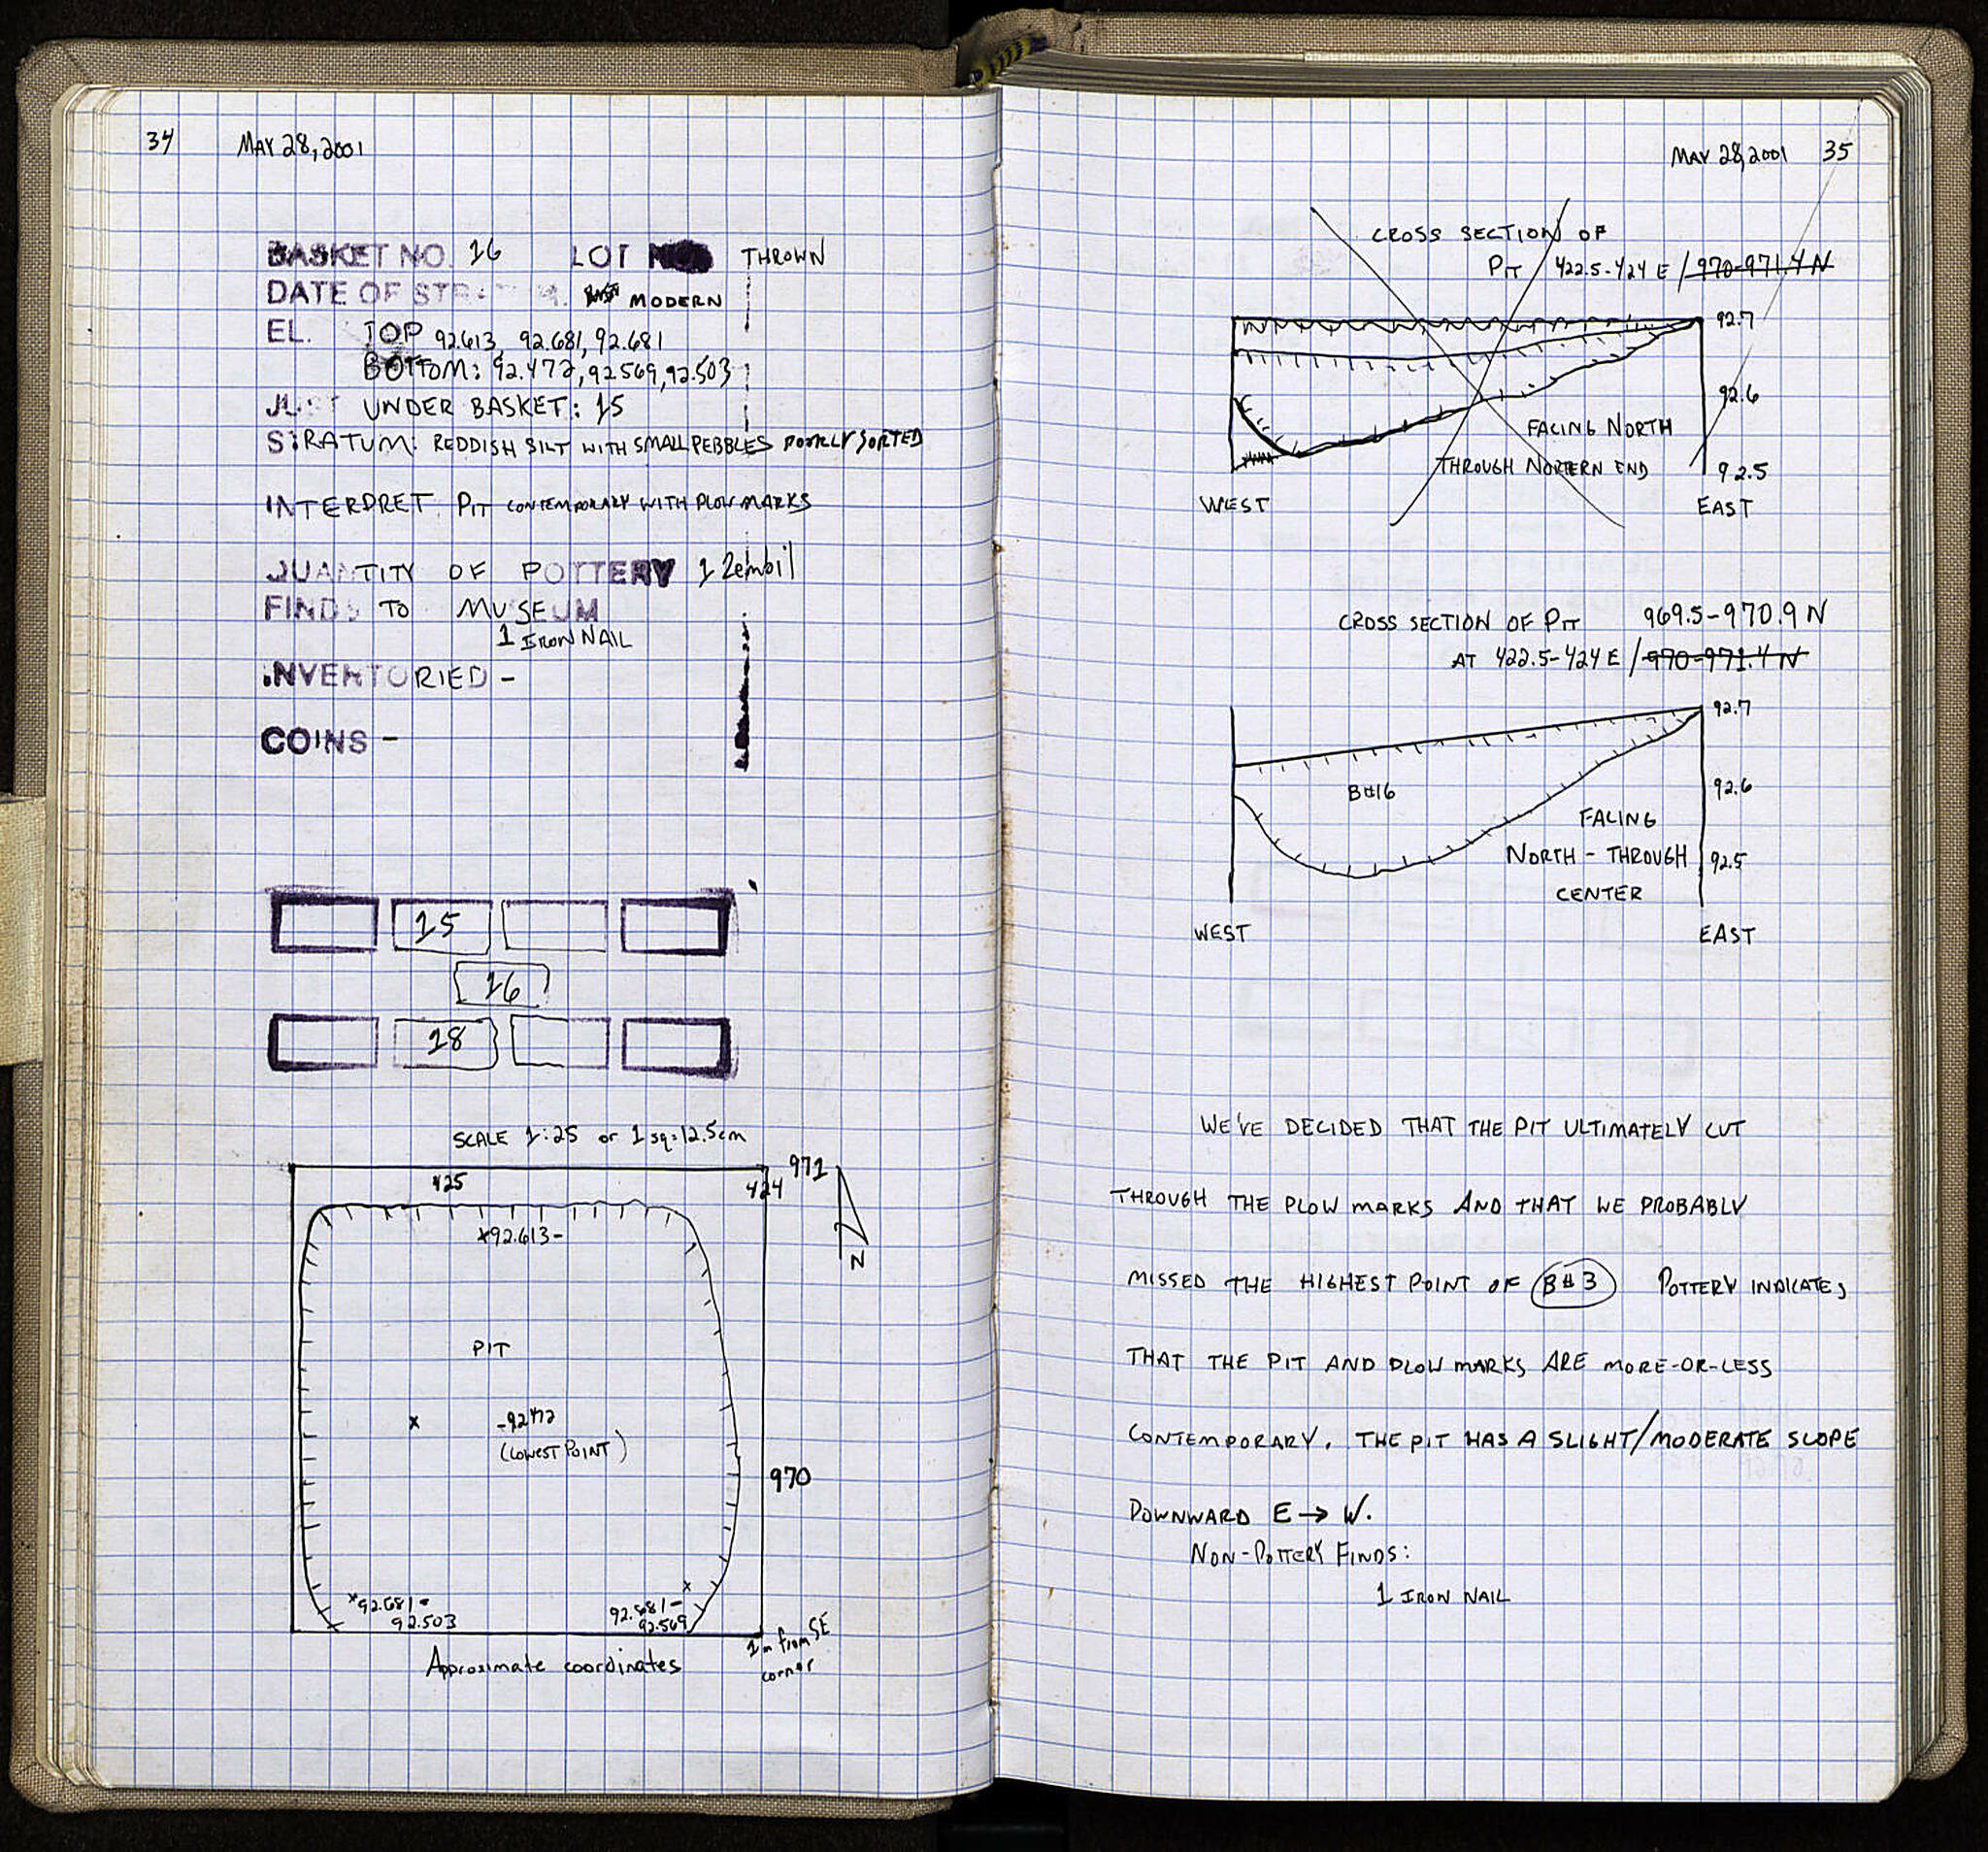 34 MAY 28, 2001
BASKET NO. 16 LOT THROWN
DATE OF MODERN
EL. TOP 92.613, 92.681, 92.681
BOTTOM: 92.472, 92.569, 92.503
JUST UNDER BASKET: 15
STRATUM: REDDISH SILT WITH SMALL PEBBLES POORLY SORTED
INTERPRET. PIT CONTEMPORARY WITH PLOW MARKS
QUANTITY OF POTTERY 1 Zembil
FINDS TO MUSEUM
1 IRON NAIL
INVENTORIED -
COINS -
15
16
18
SCALE 1:25 or 1 sq=12.5cm
971
425 424
×92.613-
N
PIT
× -92.472
(LOWEST POINT)
970
×92.681- 92.681-
92.503 92.569
1m from SE
corner
Approximate coordinates
MAY 28, 2001 35
CROSS SECTION OF
PIT 422.5-424 E / 970-971.4 N
92.7
92.6
FACING NORTH
THROUGH NORTERN END 92.5
WEST EAST
CROSS SECTION OF PIT 969.5-970.9 N
AT 422.5-424 E / 970-971.4 N
92.7
B#16 92.6
FACING
NORTH - THROUGH 92.5
CENTER
WEST EAST
WE'VE DECIDED THAT THE PIT ULTIMATELY CUT
THROUGH THE PLOW MARKS AND THAT WE PROBABLY
MISSED THE HIGHEST POINT OF B#3 POTTERY INDICATES
THAT THE PIT AND PLOW MARKS ARE MORE-OR-LESS
CONTEMPORARY. THE PIT HAS A SLIGHT/MODERATE SLOPE
DOWNWARD E → W.
NON-POTTERY FINDS:
1 IRON NAIL